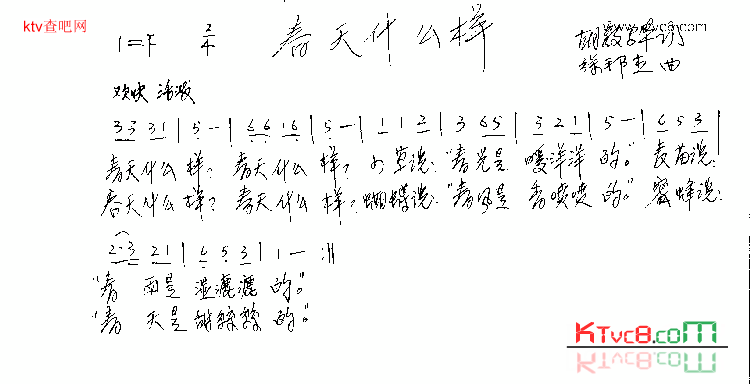 ktv查吧网
www.ktvc8.com
1=F 2/4 春天什么样
词
曲
欢快 活泼
3 3 3 1 | 5 - | 6 6 1 6 | 5 - | 1 1 2 | 3 6 5 | 3 2 1 | 5 - | 6 5 3 |
春天什么 样? 春天什么 样? 小草说:“春光是 暖洋洋 的。” 麦苗说:
春天什么 样? 春天什么 样? 蝴蝶说:“春风是 香喷喷 的。” 蜜蜂说:
2·3 2 1 | 6 5 3 | 1 - :||
“春 雨是 湿漉漉 的。”
“春 天是 甜絲絲 的。”
KTvc8.com